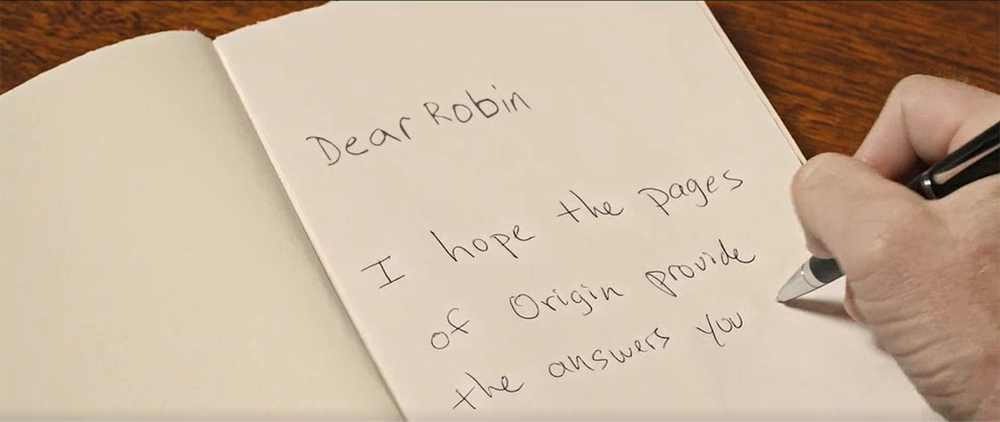 Dear Robin
I hope the pages
of Origin provide
the answers you